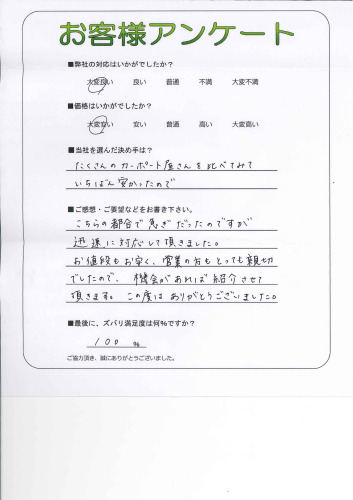 お客様アンケート
■弊社の対応はいかがでしたか？
大変良い 良い 普通 不満 大変不満
■価格はいかがでしたか？
大変安い 安い 普通 高い 大変高い
■当社を選んだ決め手は？
たくさんのカーポート屋さんを比べてみて
いちばん安かったので
■ご感想・ご要望などをお書き下さい。
こちらの都合で急ぎだったのですが
迅速に対応して頂きました。
お値段もお安く、営業の方もとっても親切
でしたので、機会があれば紹介させて
頂きます。この度はありがとうございました。
■最後に、ズバリ満足度は何%ですか？
100 %
ご協力頂き、誠にありがとうございました。